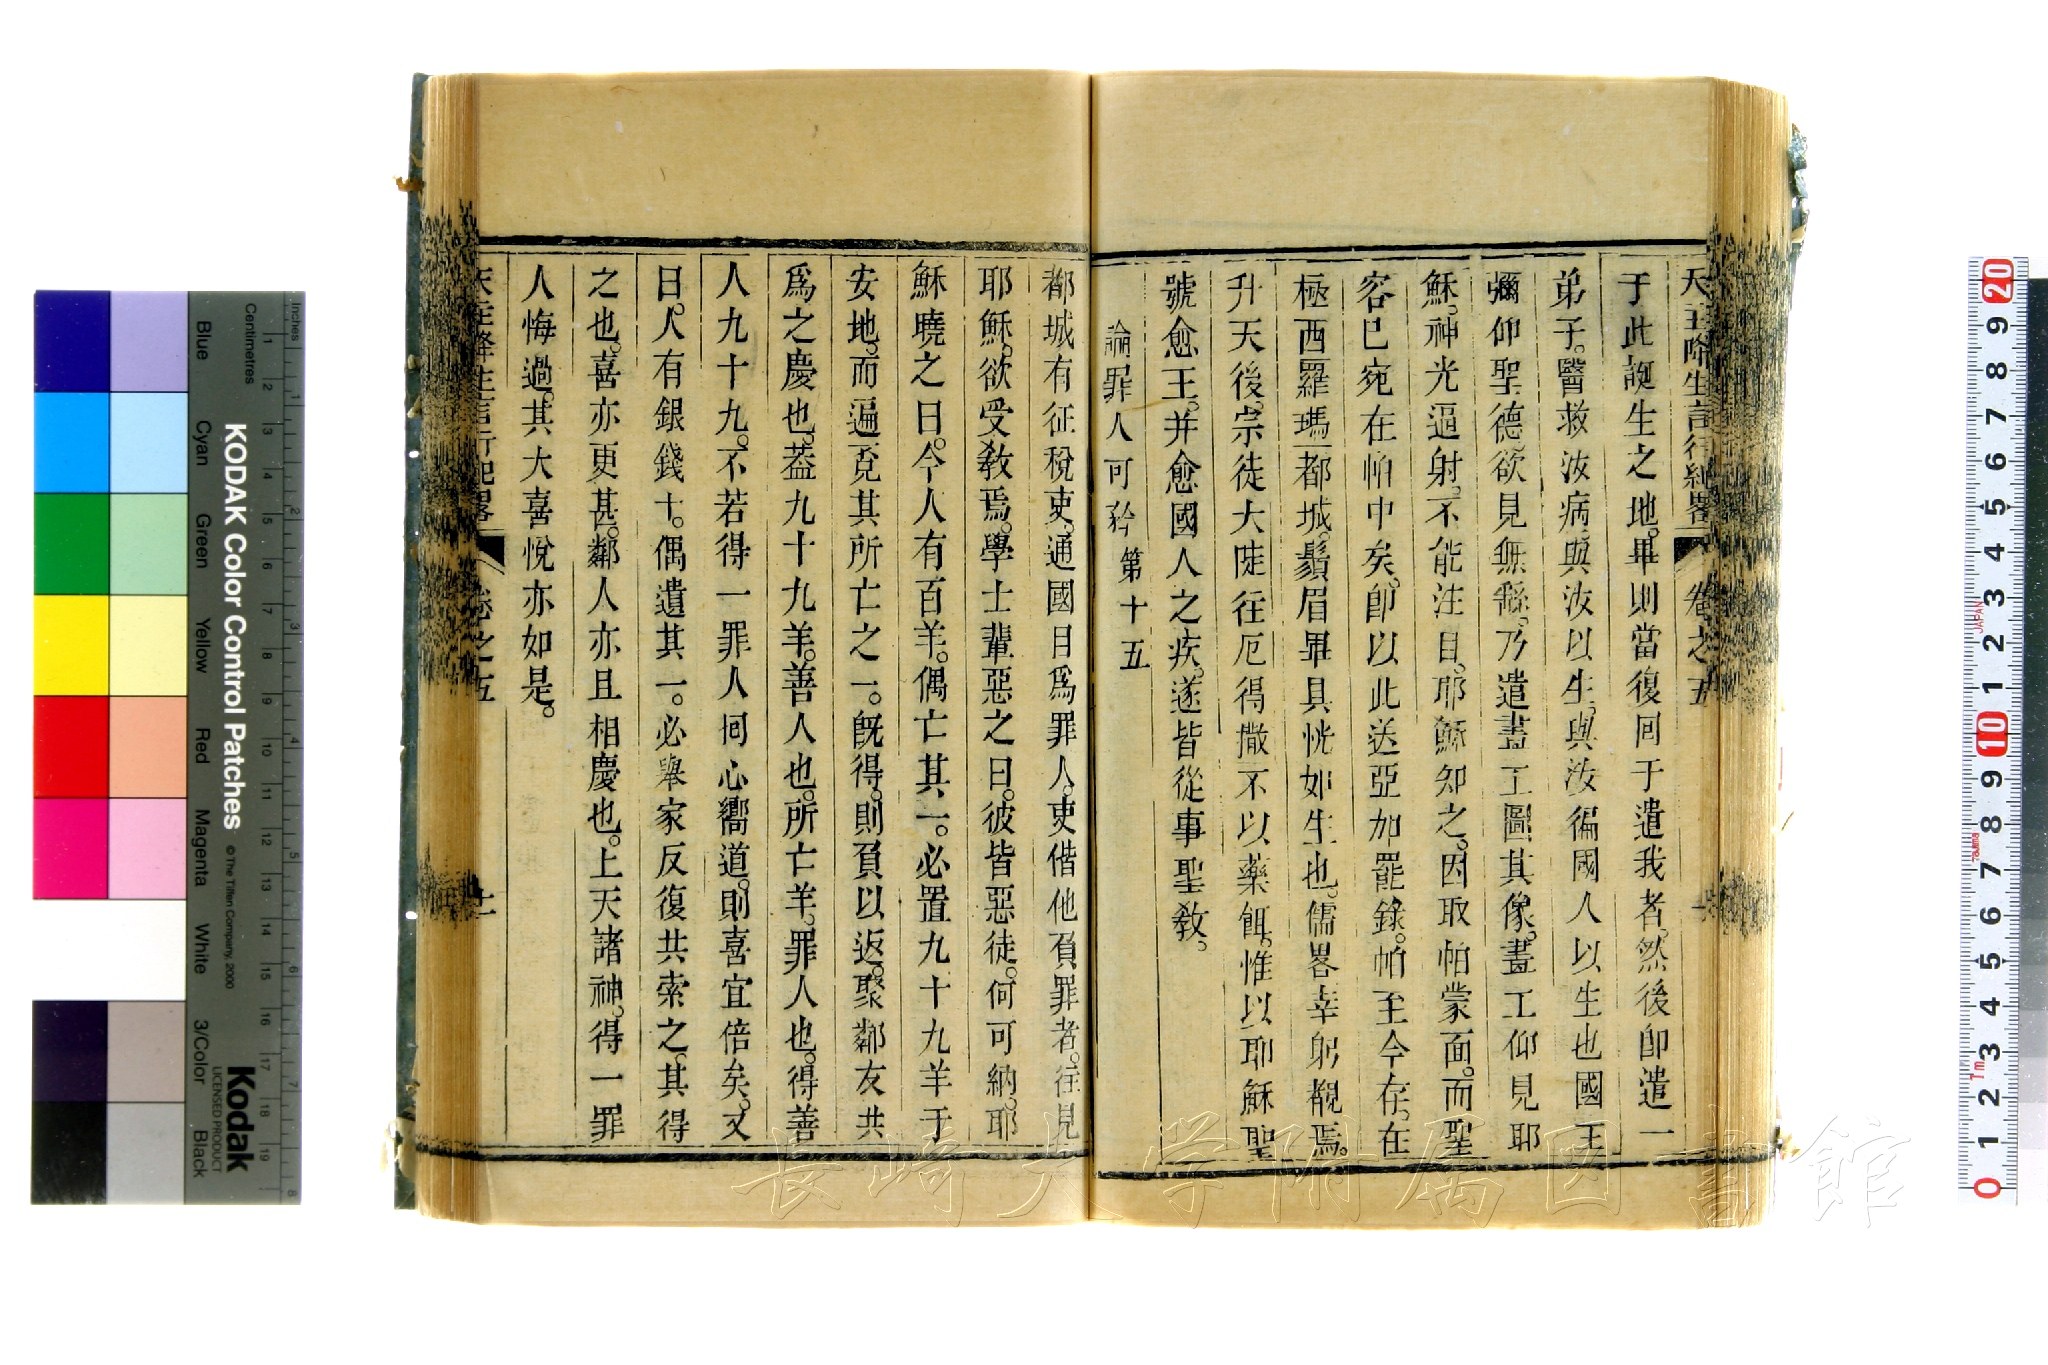 天主降生言行紀畧 卷之五
于此誕生之地。畢則當復囘于遣我者。然後卽遣一
弟子。醫救汝病。與汝以生。與汝徧國人以生也國王
彌仰聖德。欲見無繇。乃遣畫工圖其像。畫工仰見耶
穌。神光逼射。不能注目。耶穌知之。因取帕蒙面。而聖
容已宛在帕中矣。卽以此送亞加罷錄。帕至今存。在
極西羅瑪都城。鬚眉畢具恍如生也。儒畧幸躬覩焉。
升天後。宗徒大陡往厄得撒不以藥餌。惟以耶穌聖
號愈王。并愈國人之疾。遂皆從事聖敎。
論罪人可矜 第十五
都城有征稅吏。通國目爲罪人。吏偕他負罪者。往見
耶穌。欲受敎焉。學士輩惡之曰。彼皆惡徒。何可納。耶
穌曉之曰。今人有百羊。偶亡其一。必置九十九羊于
安地。而遍覓其所亡之一。旣得。則負以返。聚鄰友共
爲之慶也。葢九十九羊。善人也。所亡羊。罪人也。得善
人九十九。不若得一罪人囘心嚮道。則喜宜倍矣。又
曰。人有銀錢十。偶遺其一。必舉家反復共索之。其得
之也。喜亦更甚。鄰人亦且相慶也。上天諸神。得一罪
人悔過。其大喜悅亦如是。
天主降生言行紀畧 卷之五 十一
KODAK Color Control Patches
© The Tiffen Company, 2000
Kodak
LICENSED PRODUCT
Inches
Centimetres
Blue Cyan Green Yellow Red Magenta White 3/Color Black
長崎大学附属図書館